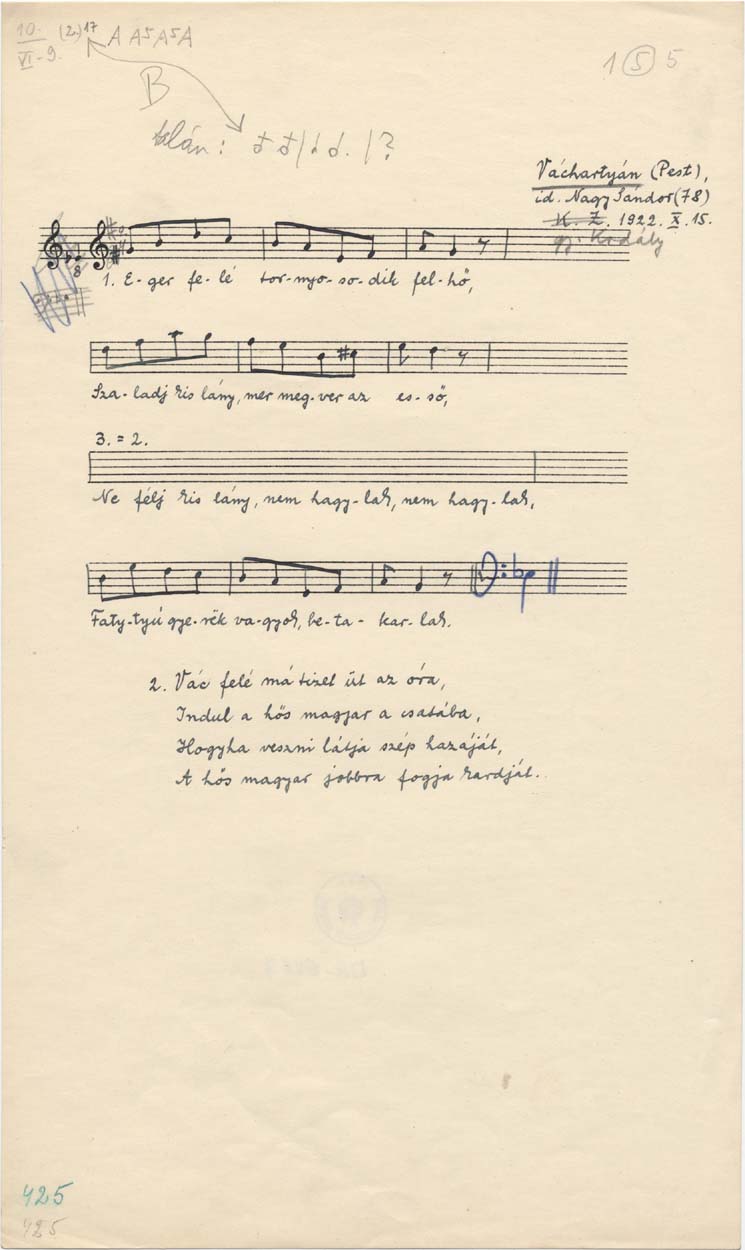 10. (2.)17 A A5 A5 A
VI-9.
B
1 5 5
talán:
Váchartyán (Pest),
id. Nagy Sándor (78)
K. Z. 1922. X. 15.
gy. Kodály
8
1. E-ger fe-lé tor-nyo-so-dik fel-hő,
Sza-ladj kis lány, mer meg-ver az es-ső,
3. = 2.
Ne félj kis lány, nem hagy-lak, nem hagy-lak,
Faty-tyú gye-rëk va-gyok, be-ta-kar-lak.
2. Vác felé má tizet üt az óra,
Indul a hős magyar a csatába,
Hogyha veszni látja szép hazáját,
A hős magyar jobbra fogja kardját.
425
425